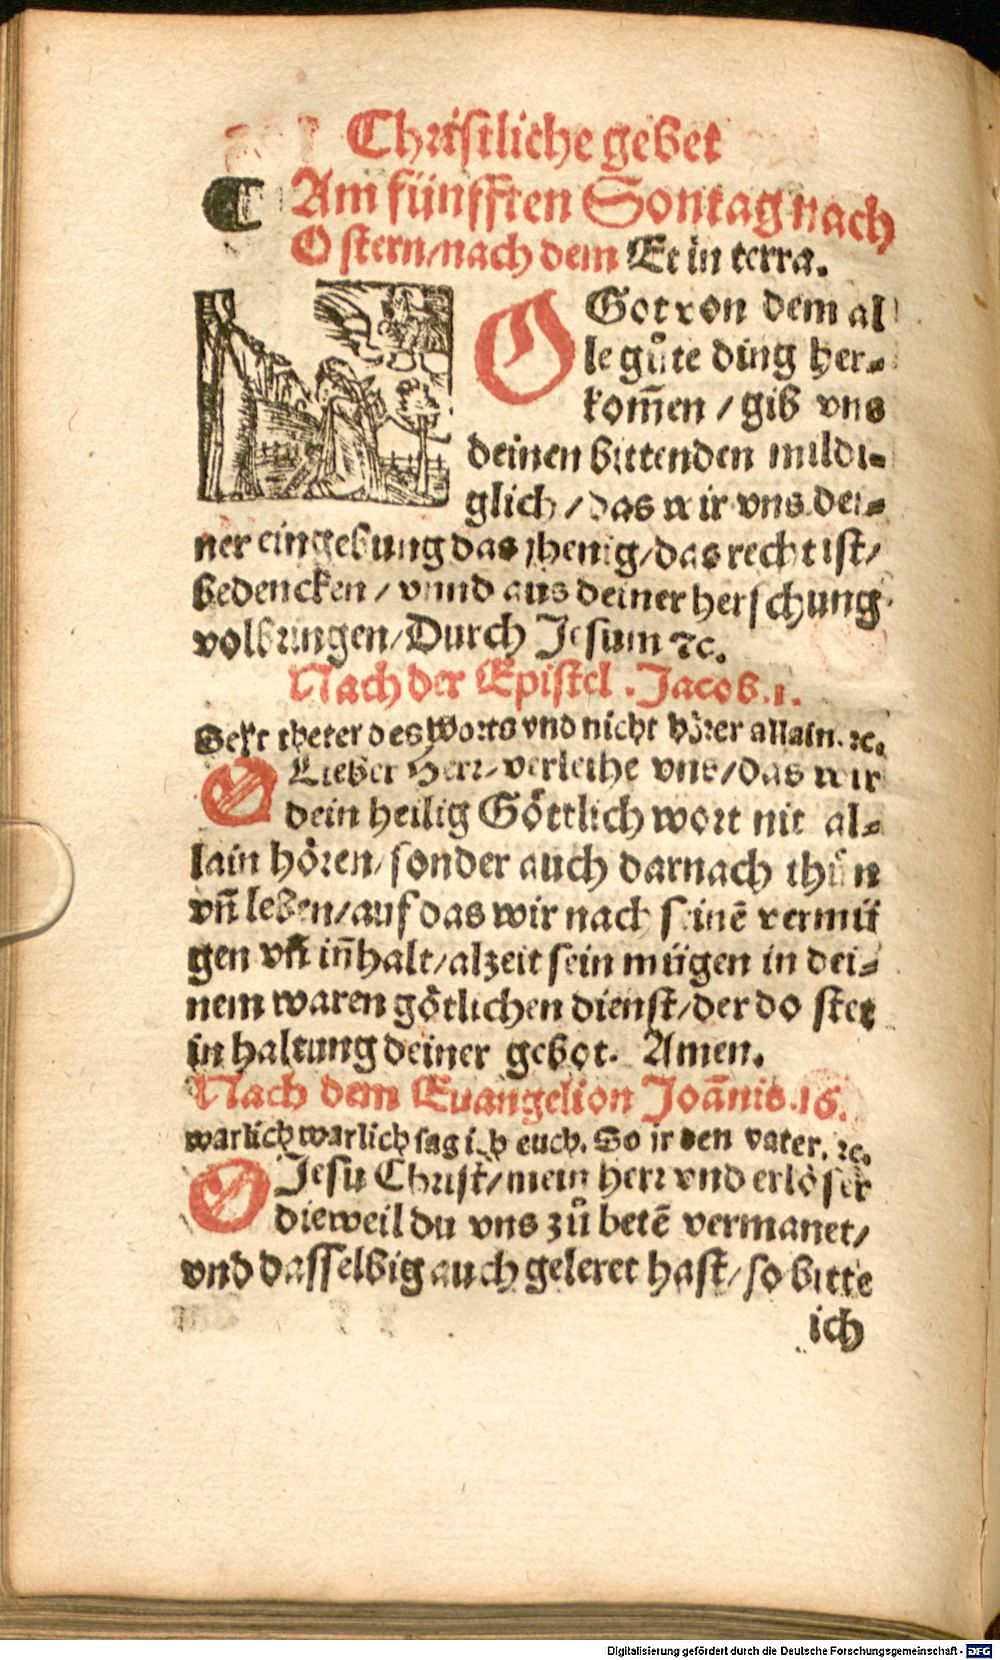 Christliche gebet
¶ Am fünfften Sontag nach
Ostern/nach dem Et in terra.
O Got von dem al
le gůte ding her-
kom̄en / gib vns
deinen bittenden mildi-
glich / das wir vns dei-
ner eingebung das jhenig/das recht ist/
bedencken / vnnd aus deiner herschung
volbringen/Durch Jesum ꝛc.
Nach der Epistel. Jacob.1.
Seyt theter des worts vnd nicht hörer allain. ꝛc.
O Lieber Herr/verleihe vns/das wir
dein heilig Göttlich wort nit al-
lain hören/sonder auch darnach thůn
vn̄ leben/auf das wir nach seinē vermü
gen vn̄ in̄halt/alzeit sein mügen in dei-
nem waren götlichen dienst/der do stet
in haltung deiner gebot. Amen.
Nach dem Euangelion Joān̄is.16.
warlich warlich sag ich euch. So jr den vater. ꝛc.
O Jesu Christ/mein herr vnd erlöser
dieweil du vns zů betē vermanet/
vnd dasselbig auch geleret hast/so bitte
ich
Digitalisierung gefördert durch die Deutsche Forschungsgemeinschaft - DFG